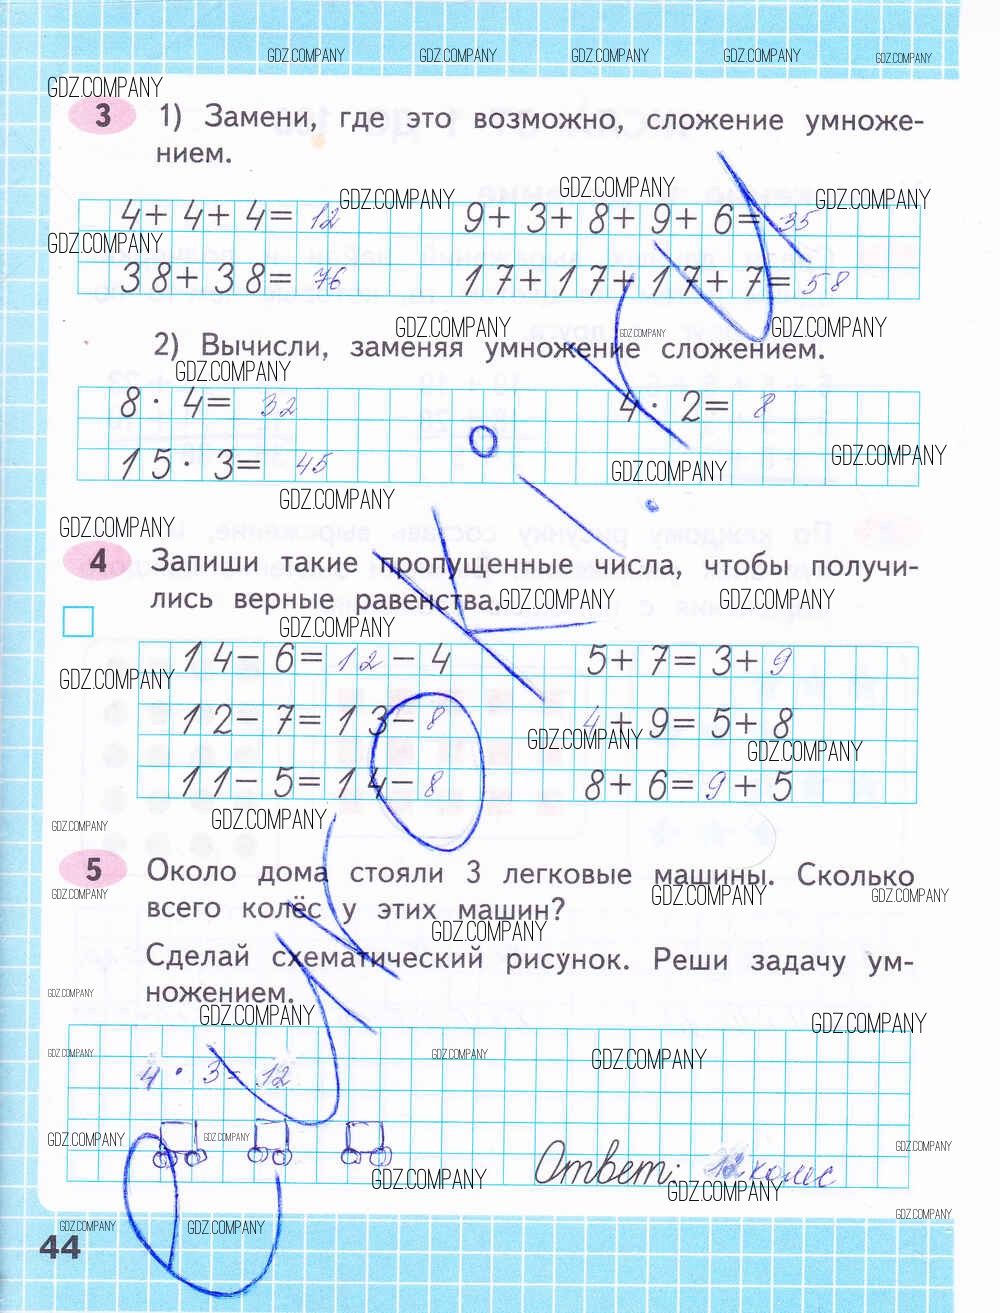 GDZ.COMPANY GDZ.COMPANY GDZ.COMPANY GDZ.COMPANY GDZ.COMPANY
GDZ.COMPANY
3 1) Замени, где это возможно, сложение умноже-
нием.
GDZ.COMPANY GDZ.COMPANY GDZ.COMPANY
4+ 4+ 4= 12 9+ 3+ 8+ 9+ 6= 35
GDZ.COMPANY
38+38= 76 17+17+17+7= 58
GDZ.COMPANY GDZ.COMPANY GDZ.COMPANY
2) Вычисли, заменяя умножение сложением.
GDZ.COMPANY
8 · 4= 32 4 · 2= 8
GDZ.COMPANY
15 · 3= 45 GDZ.COMPANY
GDZ.COMPANY
GDZ.COMPANY
4 Запиши такие пропущенные числа, чтобы получи-
лись верные равенства.
GDZ.COMPANY GDZ.COMPANY
GDZ.COMPANY
14− 6= 12 − 4 5+ 7= 3+ 9
GDZ.COMPANY
12− 7= 13− 8 4 + 9= 5+ 8
GDZ.COMPANY GDZ.COMPANY
11− 5= 14− 8 8+ 6= 9 + 5
GDZ.COMPANY GDZ.COMPANY
5 Около дома стояли 3 легковые машины. Сколько
GDZ.COMPANY GDZ.COMPANY GDZ.COMPANY
всего колёс у этих машин?
GDZ.COMPANY
Сделай схематический рисунок. Реши задачу ум-
ножением.
GDZ.COMPANY
GDZ.COMPANY GDZ.COMPANY
GDZ.COMPANY GDZ.COMPANY GDZ.COMPANY
4 · 3= 12
GDZ.COMPANY GDZ.COMPANY GDZ.COMPANY
Ответ: 12 колес
GDZ.COMPANY GDZ.COMPANY
GDZ.COMPANY GDZ.COMPANY GDZ.COMPANY
44